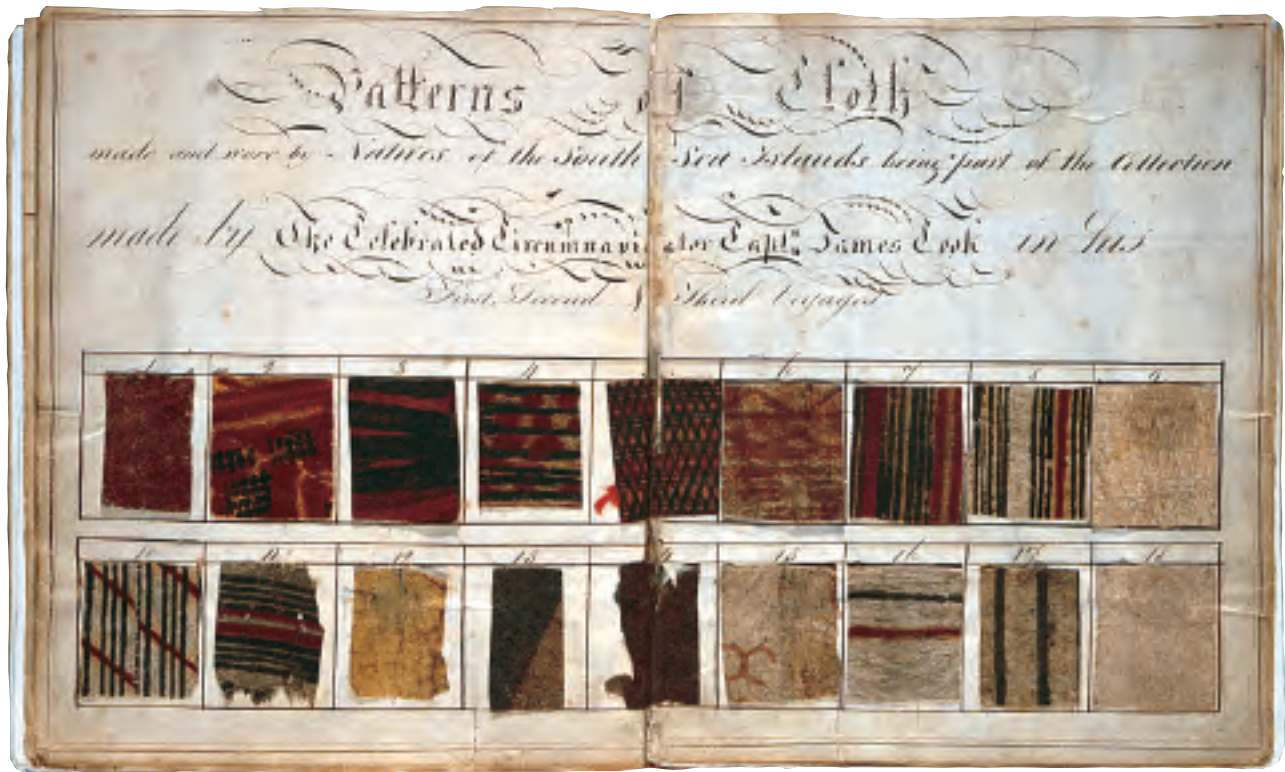 Patterns of Cloth
made and wore by Natives of the South Sea Islands being part of the Collection
made by The Celebrated Circumnavigator Capt.n James Cook in his
First, Second & Third Voyages
1 2 3 4 6 7 8 9
10 11 12 13 14 15 16 17 18